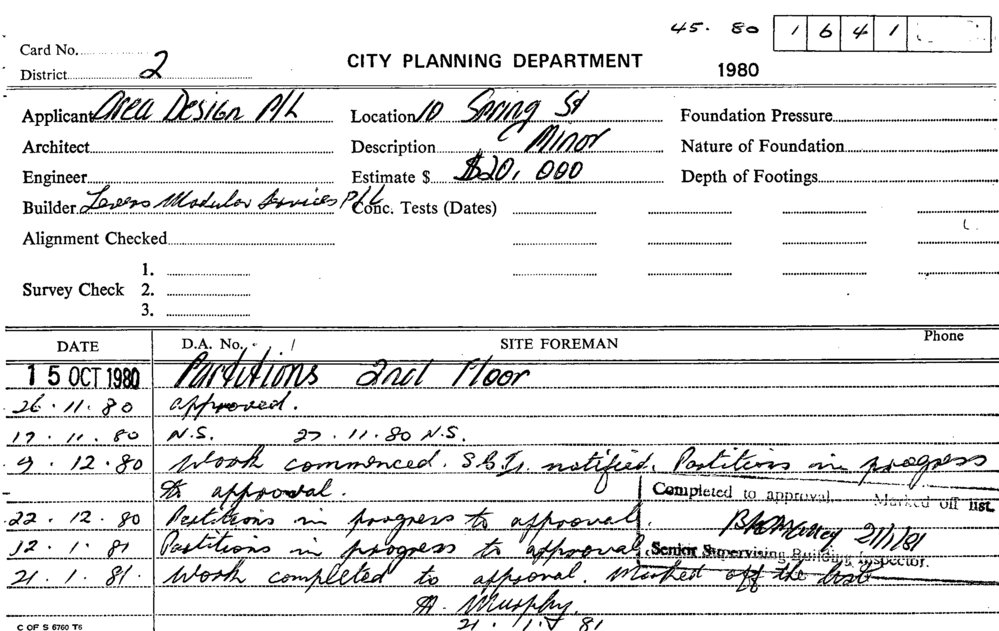 45. 80 1641
Card No.
District 2
CITY PLANNING DEPARTMENT
1980
Applicant Area Design P/L
Location 10 Spring St
Foundation Pressure
Architect
Description Minor
Nature of Foundation
Engineer
Estimate $ $20,000
Depth of Footings
Builder Levers Modular Services P/L
Conc. Tests (Dates)
Alignment Checked
Survey Check
1.
2.
3.
DATE D.A. No. SITE FOREMAN Phone
15 OCT 1980 Partitions 2nd Floor
26.11.80 approved.
17.11.80 N.S. 27.11.80 N.S.
9.12.80 Work commenced. notified. Partitions in progress
to approval.
Completed to approval. Marked off list.
22.12.80 Partitions in progress to approval.
21/1/81
12.1.81 Partitions in progress to approval.
Senior Supervising Building Inspector.
21.1.81. Work completed to approval. Marked off the list
A. Murphy.
21.1.81
C OF S 6760 T6